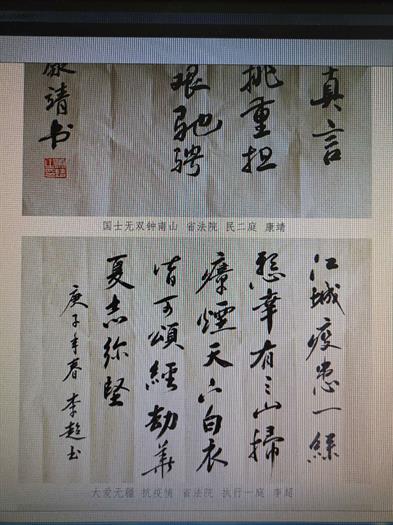 真言
挑重担
眼驰骋
康靖书
国士无双钟南山 省法院 民二庭 康靖
江城疫患一線
懸幸有三山掃
瘴煙天下白衣
皆可頌經劫華
夏志弥堅
庚子年春 李超书
大爱无疆 抗疫情 省法院 执行一庭 李超